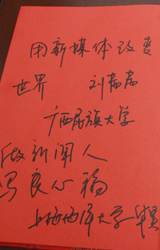 用新媒体改变
世界 刘
广西民族大学
做新闻人
写良心稿
上海海洋大学